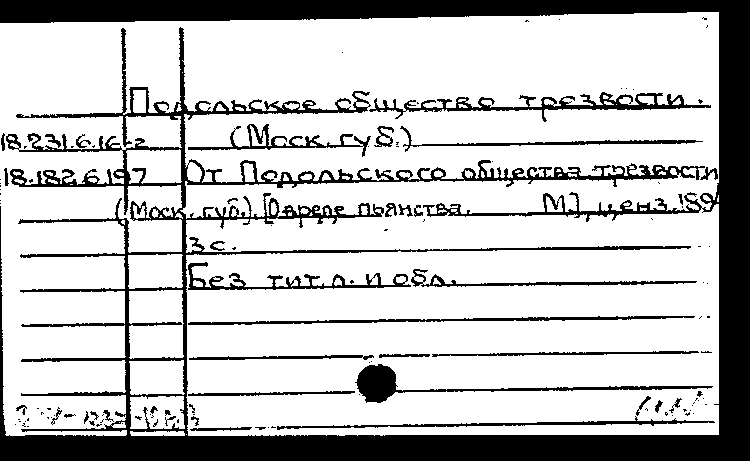 Подольское общество трезвости.
18.231.6.16-2 (Моск. губ.)
18.182.6.197 От Подольского общества трезвости
(Моск. губ.). [О вреде пьянства. М.], ценз. 189
3 с.
Без тит. л. и обл.